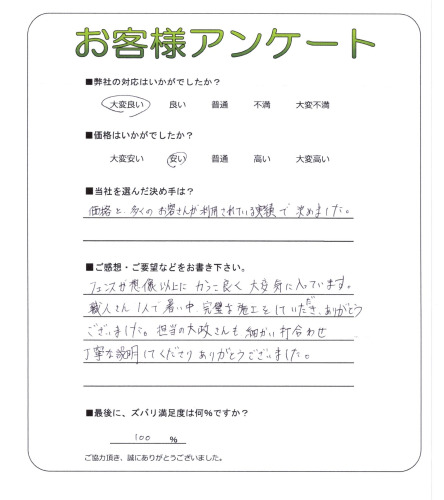 お客様アンケート
■弊社の対応はいかがでしたか？
大変良い 良い 普通 不満 大変不満
■価格はいかがでしたか？
大変安い 安い 普通 高い 大変高い
■当社を選んだ決め手は？
価格と、多くのお客さんが利用されている実績で決めました。
■ご感想・ご要望などをお書き下さい。
フェンスが想像以上にカッコ良く大変気に入っています。
職人さん1人で暑い中、完璧な施工をしていただき、ありがとう
ございました。担当の大政さんも細かい打合わせ
丁寧な説明してくださりありがとうございました。
■最後に、ズバリ満足度は何％ですか？
100 ％
ご協力頂き、誠にありがとうございました。